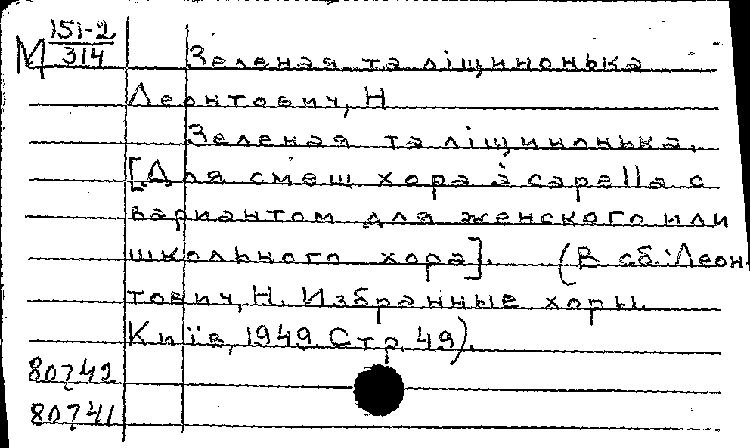 М 151-2
314
Зеленая та ліщинонька
Леонтович, Н
Зеленая та ліщинонька.
[Для смеш хора à capella с
вариантом для женского или
школьного хора]. (В сб.: Леон-
тович, Н. Избранные хоры.
Київ, 1949. Стр. 49).
80742
80741